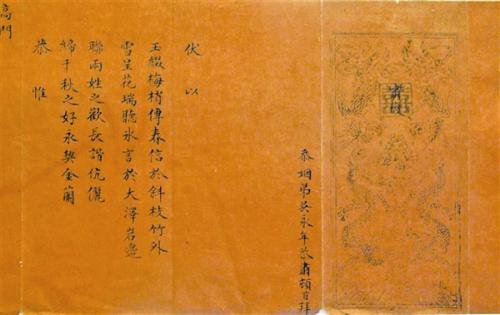 囍
忝姻弟吳永年恭肅頓首拜
伏以
玉綴梅梢傳春信於斜枝竹外
雪呈花瑞聽氷言於大澤岩邊
聯兩姓之歡長諧伉儷
締千秋之好永契金蘭
恭惟
高門